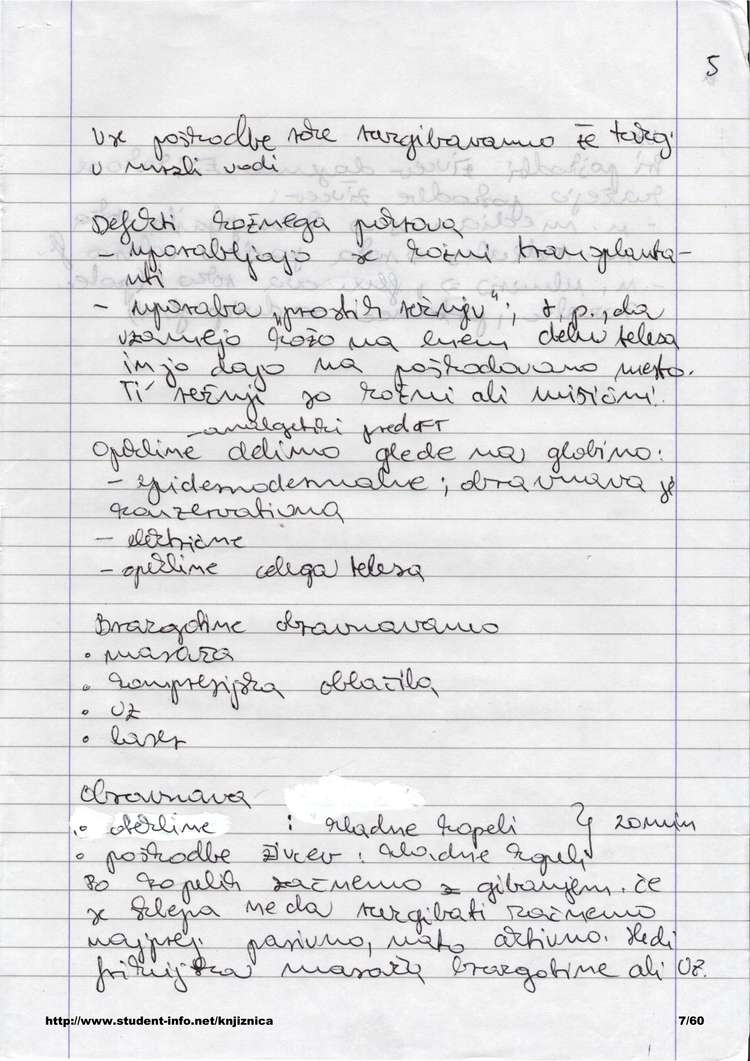 5
Vse poškodbe roke razgibavamo že takoj
v mrzli vodi
Defekti kožnega pokrova
- uporabljajo se kožni transplanta-
nti
- uporaba "prostih režnjev"; t.p., da
vzamejo kožo na enem delu telesa
in jo dajo na poškodovano mesto.
Ti režnji so kožni ali mišični.
- analgetiki pred FT
Opekline delimo glede na globino:
- epidermodermalne; obravnava je
konzervativna
- električne
- opekline celega telesa
Brazgotine obravnavamo
• masaža
• kompresijska oblačila
• UZ
• laser
Obravnava
• otekline : hladne kopeli } 20 min
• poškodbe živcev : hladne kopeli
Po kopelih začnemo z gibanjem. Če
se sklepa ne da razgibati začnemo
najprej pasivno, nato aktivno. Sledi
frikcijska masaža brazgotine ali UZ.
http://www.student-info.net/knjiznica
7/60